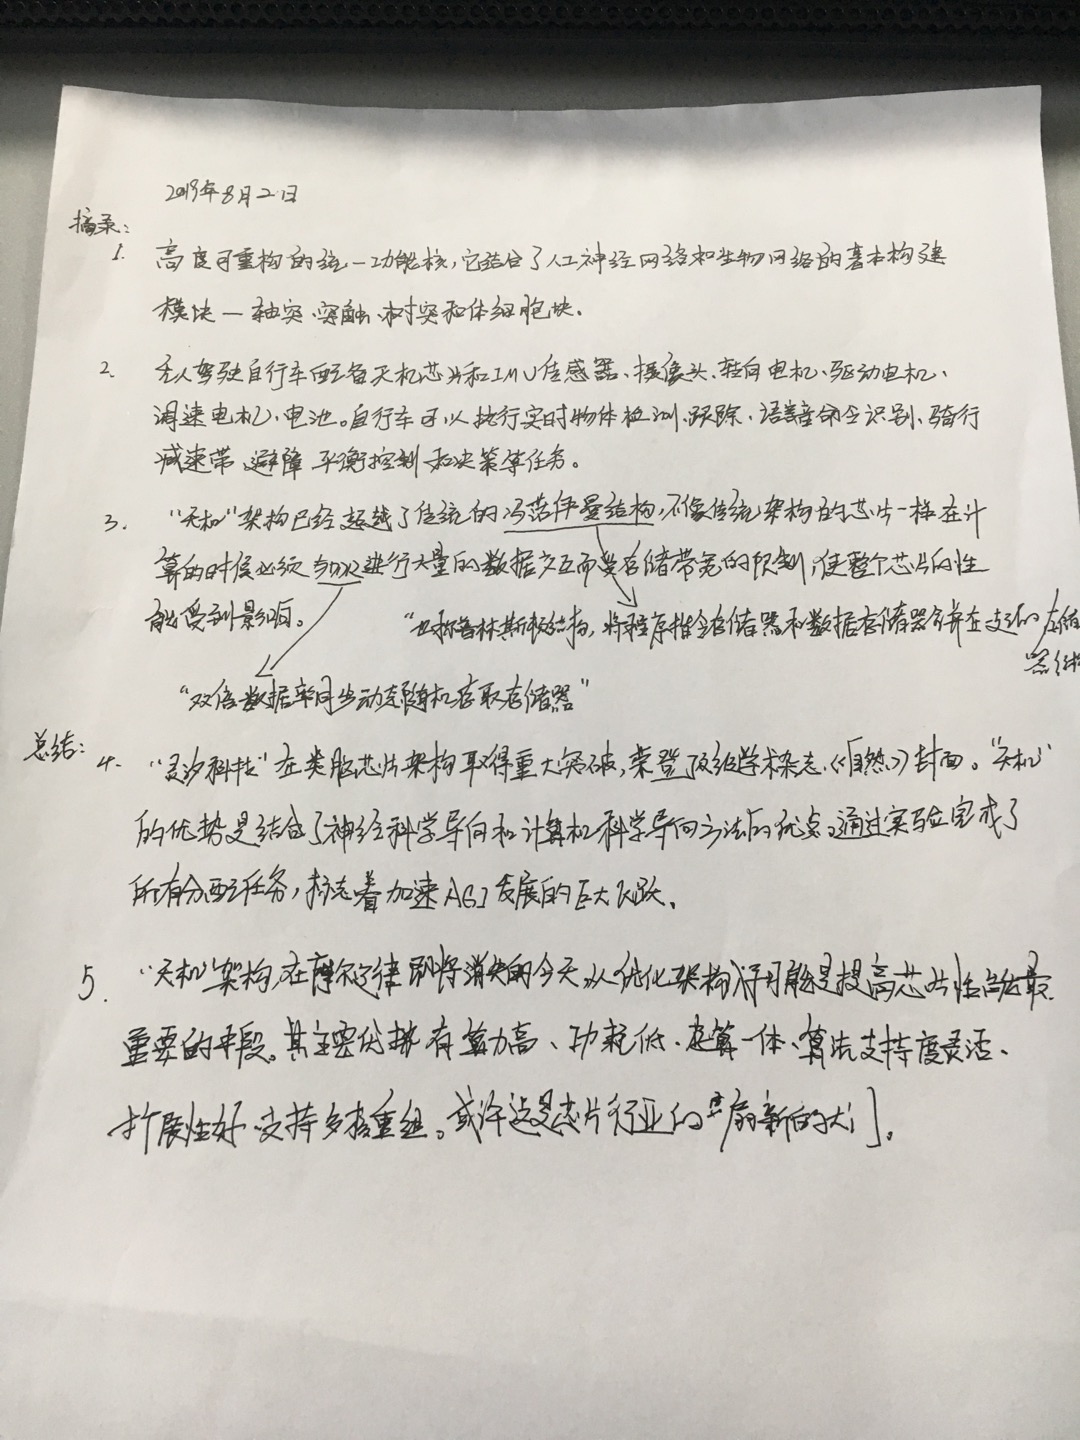 2019年8月2日
摘录:
1. 高度可重构的统一功能核,它结合了人工神经网络和生物网络的基本构建
模块—轴突、突触、树突和体细胞块.
2. 无人驾驶自行车配备天机芯片和IMU传感器、摄像头、转向电机、驱动电机、
调速电机、电池。自行车可以执行实时物体检测、跟踪、语音命令识别、骑行
减速带、避障、平衡控制和决策等任务。
3. “天机”架构已经超越了传统的冯诺伊曼结构,不像传统架构的芯片一样在计
算的时候必须与DDR进行大量的数据交互而受存储带宽的限制,使整个芯片的性
能受到影响。
“也称普林斯顿结构,将程序指令存储器和数据存储器合并在一起的存储
器结构
“双倍数据率同步动态随机存取存储器”
总结: 4. “灵汐科技”在类脑芯片架构取得重大突破,荣登顶级学术杂志《自然》封面。“天机”
的优势是结合了神经科学导向和计算机科学导向方法的优点。通过实验完成了
所有分配任务,标志着加速AGI发展的巨大飞跃.
5. “天机”架构,在摩尔定律即将消失的今天,从优化架构将可能是提高芯片性能最
重要的手段。其主要优势有算力高、功耗低、存算一体、算法支持度灵活、
扩展性好、支持多核重组。或许这是芯片行业的一扇新的大门。